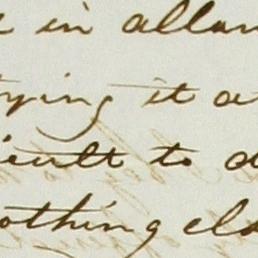 in allan
ying it a
icult to d
othing cla